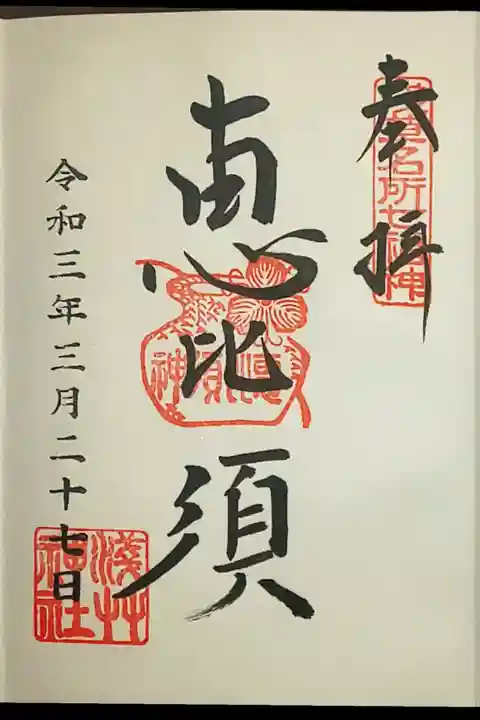 奉拝
名所七福神
恵比須
令和三年三月二十七日
淺草神社